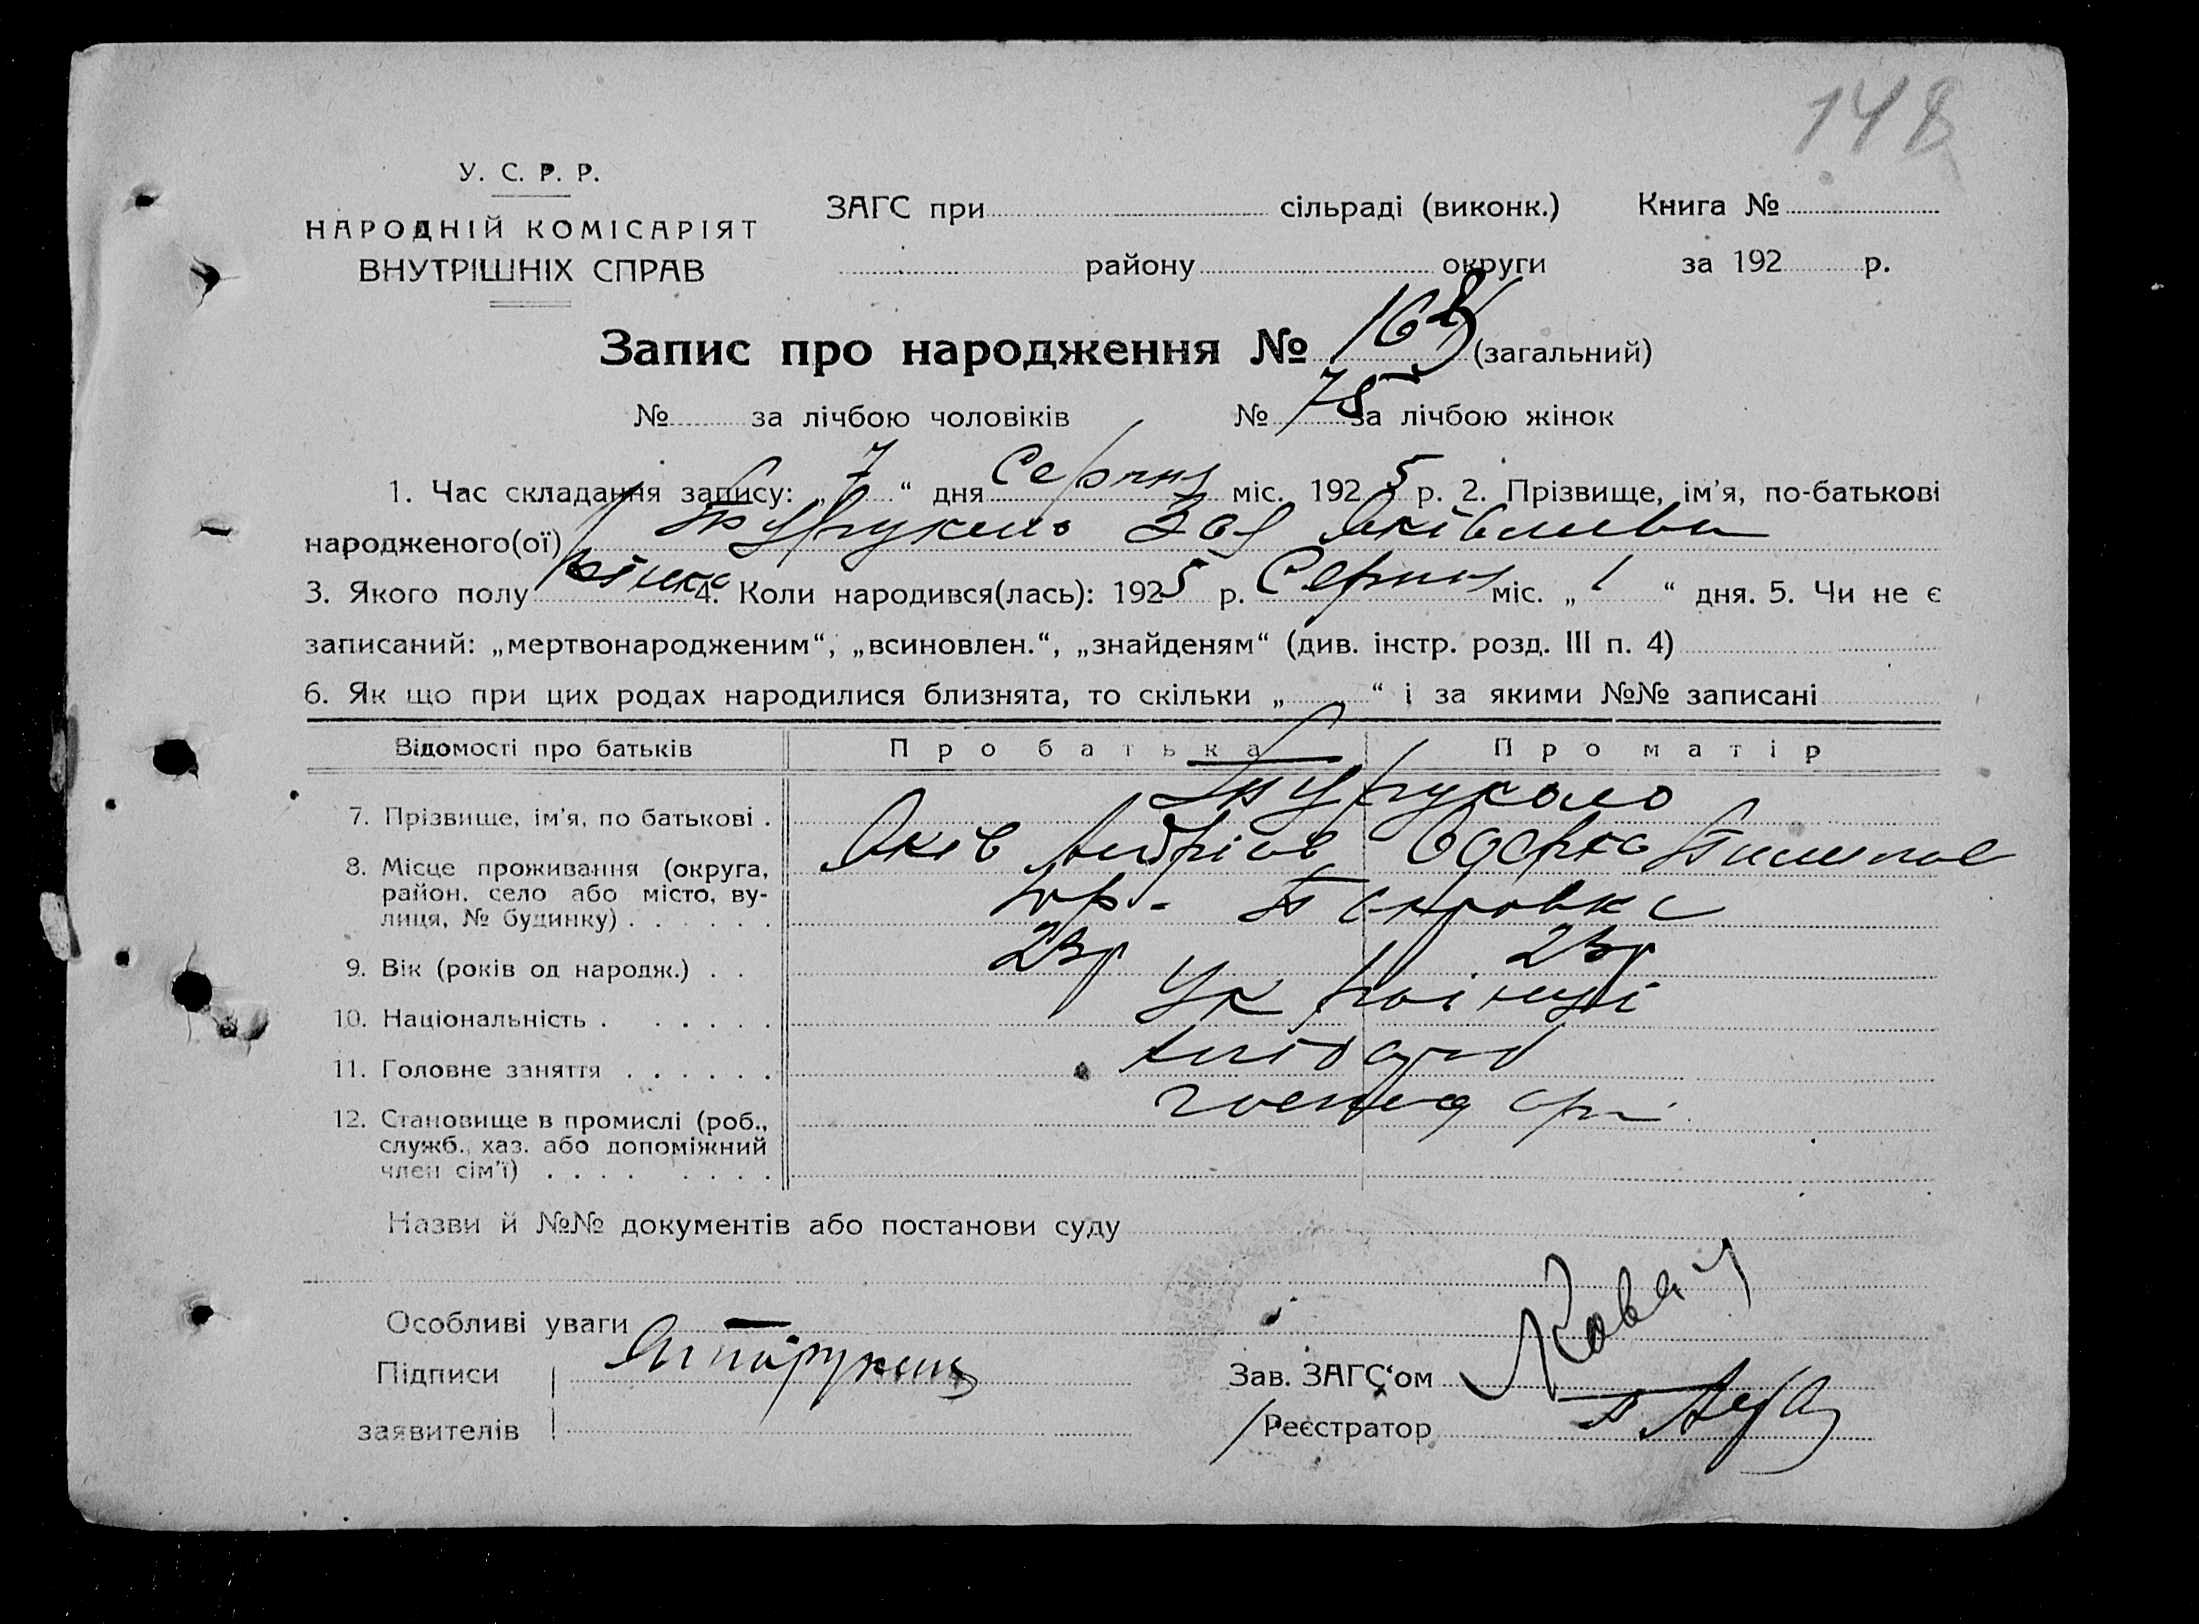 148
У. С. Р. Р.
НАРОДНІЙ КОМІСАРІЯТ
ВНУТРІШНІХ СПРАВ
ЗАГС при сільраді (виконк.) Книга №
району округи за 192 р.
Запис про народження № 168 (загальний)
№ за лічбою чоловіків № 75 за лічбою жінок
1. Час складання запису: „ 7 “ дня Серпня міс. 1925 р. 2. Прізвище, ім’я, по-батькові
народженого(ої) Зоя Яківлива
3. Якого полу жінка 4. Коли народився(лась): 1925 р. Серпня міс. „ 1 “ дня. 5. Чи не є
записаний: „мертвонародженим“, „всиновлен.“, „знайденям“ (див. інстр. розд. III п. 4)
6. Як що при цих родах народилися близнята, то скільки „ “ і за якими №№ записані
Відомості про батьків Про батька Про матір
7. Прізвище, ім’я, по батькові .
Яків Андріів Одарка
8. Місце проживання (округа,
район, село або місто, ву-
лиця, № будинку) . . . . . . Покровка
9. Вік (років од народж.) . . 23р 23р
10. Національність . . . . . . Українці
11. Головне заняття . . . . . .
12. Становище в промислі (роб.,
служб., хаз. або допоміжний
член сім’ї) . . . . . . . .
Назви й №№ документів або постанови суду
Особливі уваги
Підписи
заявителів
Зав. ЗАГС‘ом Ковал
Реєстратор